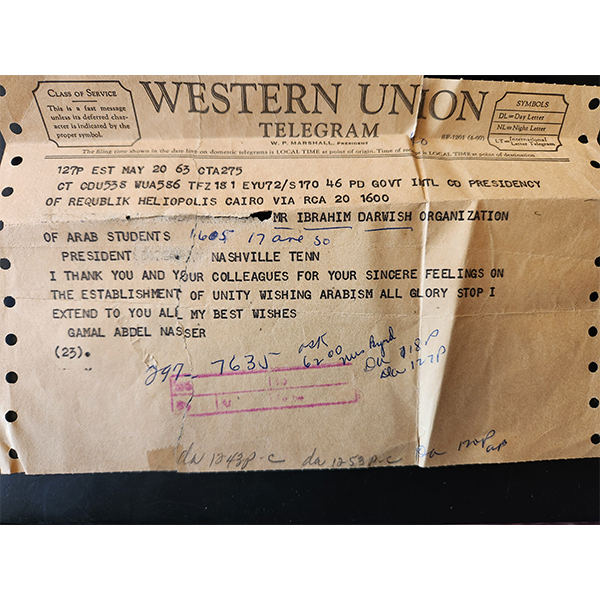 CLASS OF SERVICE
This is a fast message
unless its deferred char-
acter is indicated by the
proper symbol.
WESTERN UNION
TELEGRAM
W. P. MARSHALL, PRESIDENT
SYMBOLS
DL=Day Letter
NL=Night Letter
LT=International Letter Telegram
SF-1201 (4-60)
The filing time shown in the date line on domestic telegrams is LOCAL TIME at point of origin. Time of receipt is LOCAL TIME at point of destination
127P EST MAY 20 63 CTA275
CT CDU538 WUA586 TFZ181 EYU72/S170 46 PD GOVT INTL CD PRESIDENCY
OF REQUBLIK HELIOPOLIS CAIRO VIA RCA 20 1600
MR IBRAHIM DARWISH ORGANIZATION
OF ARAB STUDENTS 1605 17 ave so
PRESIDENT NASHVILLE TENN
I THANK YOU AND YOUR COLLEAGUES FOR YOUR SINCERE FEELINGS ON
THE ESTABLISHMENT OF UNITY WISHING ARABISM ALL GLORY STOP I
EXTEND TO YOU ALL MY BEST WISHES
GAMAL ABDEL NASSER
(23).
297-7635 ask
6200 mrs Byrd
Da 118P
Da 127P
da 1243P-C da 1253P-C Da 120P